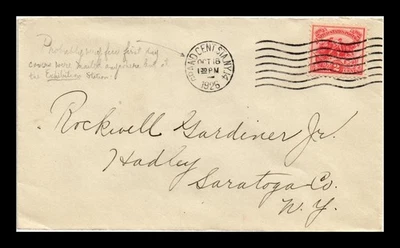 Probably one of few first day
covers were mailed anywhere but at
the Exhibition Station.
GRAND CENT. STA. N.Y.
OCT 18
12 PM
1926
Rockwell Gardiner Jr.
Hadley
Saratoga Co.
N.Y.